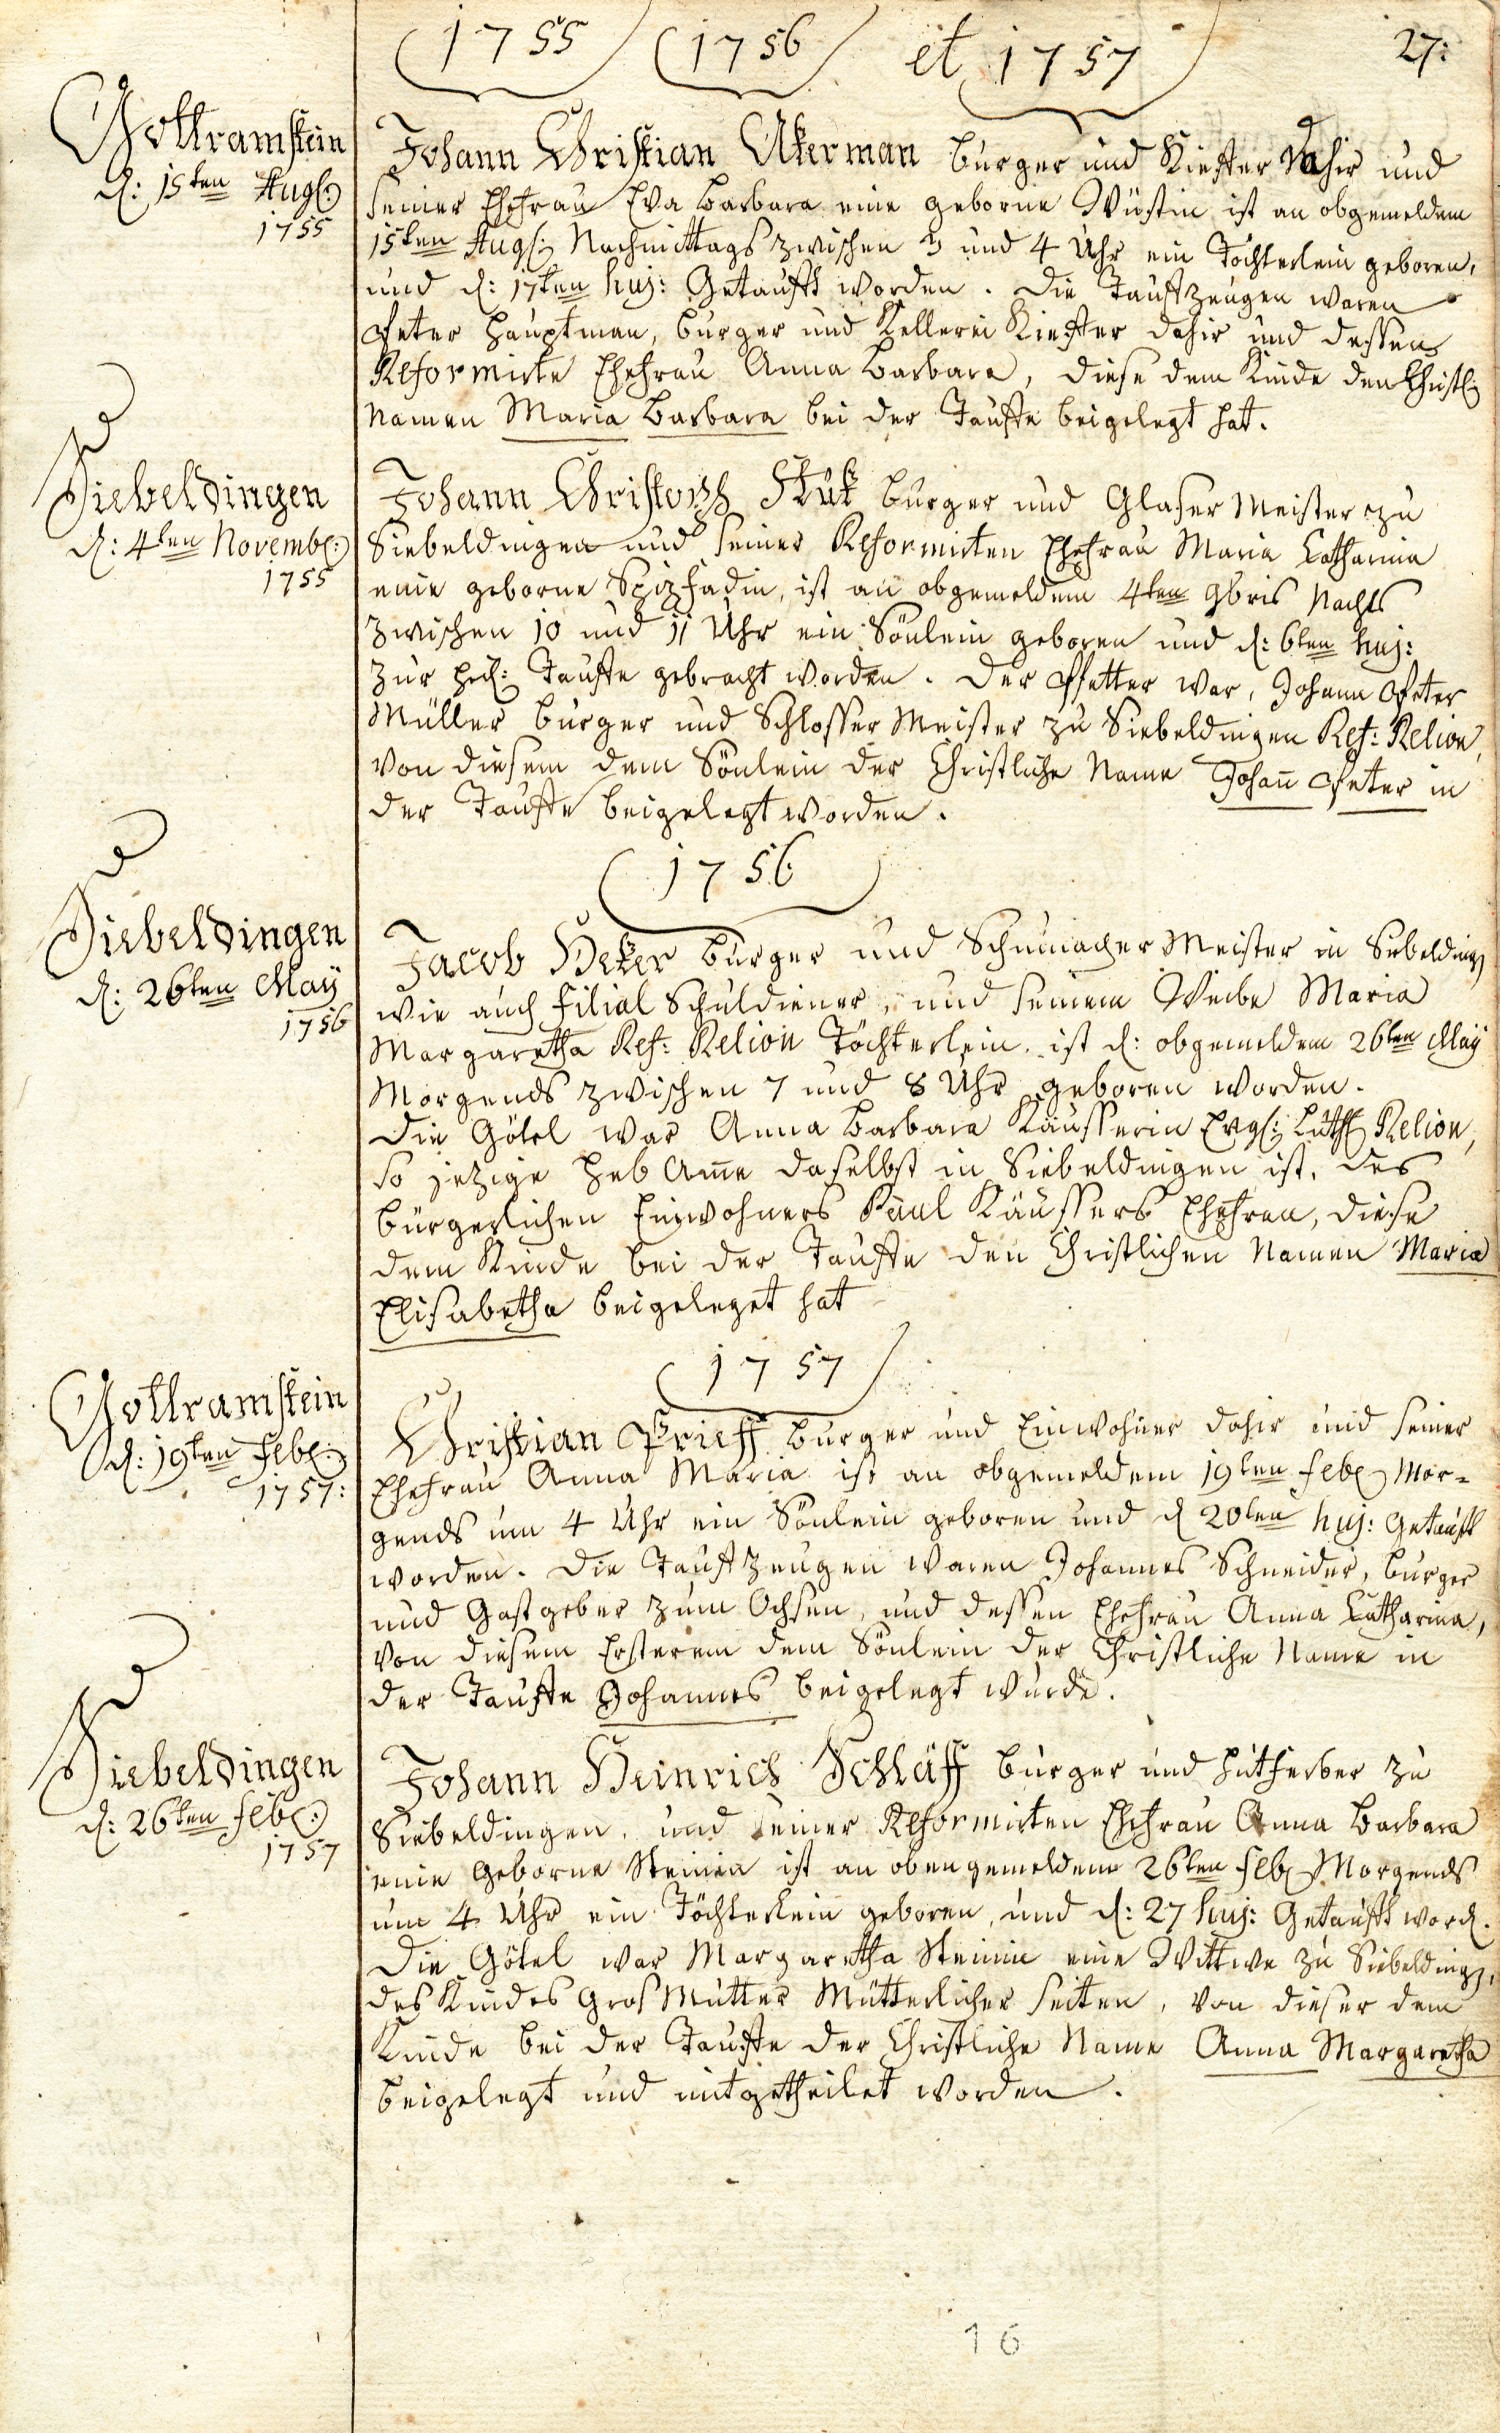 1755 1756 et 1757
27:
Gottramstein
d: 15ten Augs:
1755
Johann Christian Akerman burger und Kieffer dahir und
seiner Ehefrau Eva Barbara eine geborne Wüstin ist an obgemeldem
15ten Augs: Nachmittags zwischen 3 und 4 Uhr ein Töchterlein geboren,
und d: 17ten huj: Getaufft worden. Die Taufzeugen waren
Peter Hauptman, burger und Kellerei Kieffer dahir und dessen
Reformirte Ehefrau Anna Barbara, diese dem Kinde den Christl:
Namen Maria Barbara bei der Tauffe beigelegt hat.
Siebeldingen
d: 4ten Novemb:
1755
Johann Christoph Stuk burger und Glaser Meister zu
Siebeldingen und seiner Reformirten Ehefrau Maria Catharina
eine geborne Spizfadin, ist an obgemeldem 4ten 9bris Nachts
zwischen 10 und 11 Uhr ein Sönlein geboren und d: 6ten huj:
zur heil: Tauffe gebracht worden. Der Pfetter war, Johann Peter
Müller burger und Schlosser Meister zu Siebeldingen Ref: Relion,
von diesem dem Sönlein der Christliche Name Johañ Peter in
der Tauffe beigelegt worden.
1756
Siebeldingen
d: 26ten May
1756
Jacob Heker burger und Schumacher Meister in Siebelding
wie auch filial Schuldiener, und seinem Weibe Maria
Margaretha Ref: Relion Töchterlein, ist d: obgemeldem 26ten May
Morgends zwischen 7 und 8 Uhr geboren worden.
Die Götel war Anna Barbara Käusserin Evgl: Luth: Relion,
so jezige Heb Ame daselbst in Siebeldingen ist, des
bürgerlichen Einwohners Paul Käussers Ehefrau, diese
dem Kinde bei der Tauffe den Christlichen Namen Maria
Elisabetha beigeleget hat
1757
Gottramstein
d: 19ten Feb:
1757:
Christian Prieff burger und Einwohner dahir und seiner
Ehefrau Anna Maria ist an obgemeldem 19ten Feb: Mor=
gends um 4 Uhr ein Sönlein geboren und d 20ten huj: Getaufft
worden. Die Taufzeugen waren Johannes Schneider, burger
und Gastgeber zum Ochsen, und dessen Ehefrau Anna Catharina,
von diesem Ersterem dem Sönlein der Christliche Name in
der Tauffe Johannes beigelegt wurde.
Siebeldingen
d: 26ten Feb:
1757
Johann Heinrich Schläff burger und zu
Siebeldingen, und seiner Reformirten Ehefrau Anna Barbara
eine Geborne Steinin ist an obengemeldem 26ten Feb: Morgends
um 4 Uhr ein Töchterlein geboren, und d: 27 huj: Getaufft word.
Die Götel war Margaretha Steinin eine Wittwe zu Siebelding,
des Kindes Gros Mutter Mütterlicher seiten, von dieser dem
Kinde bei der Tauffe der Christliche Name Anna Margaretha
beigelegt und mitgetheilet worden.
16